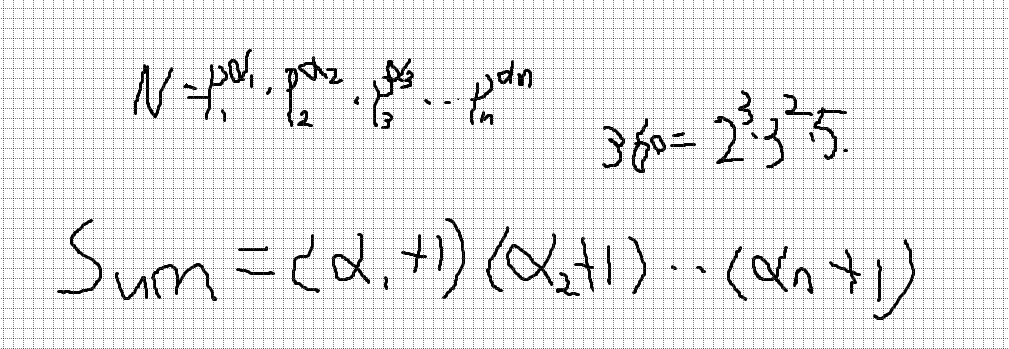 N = p₁^α₁ · p₂^α₂ · p₃^α₃ ··· pₙ^αₙ
360 = 2³·3²·5.
Sum = (α₁+1)(α₂+1)··(αₙ+1)